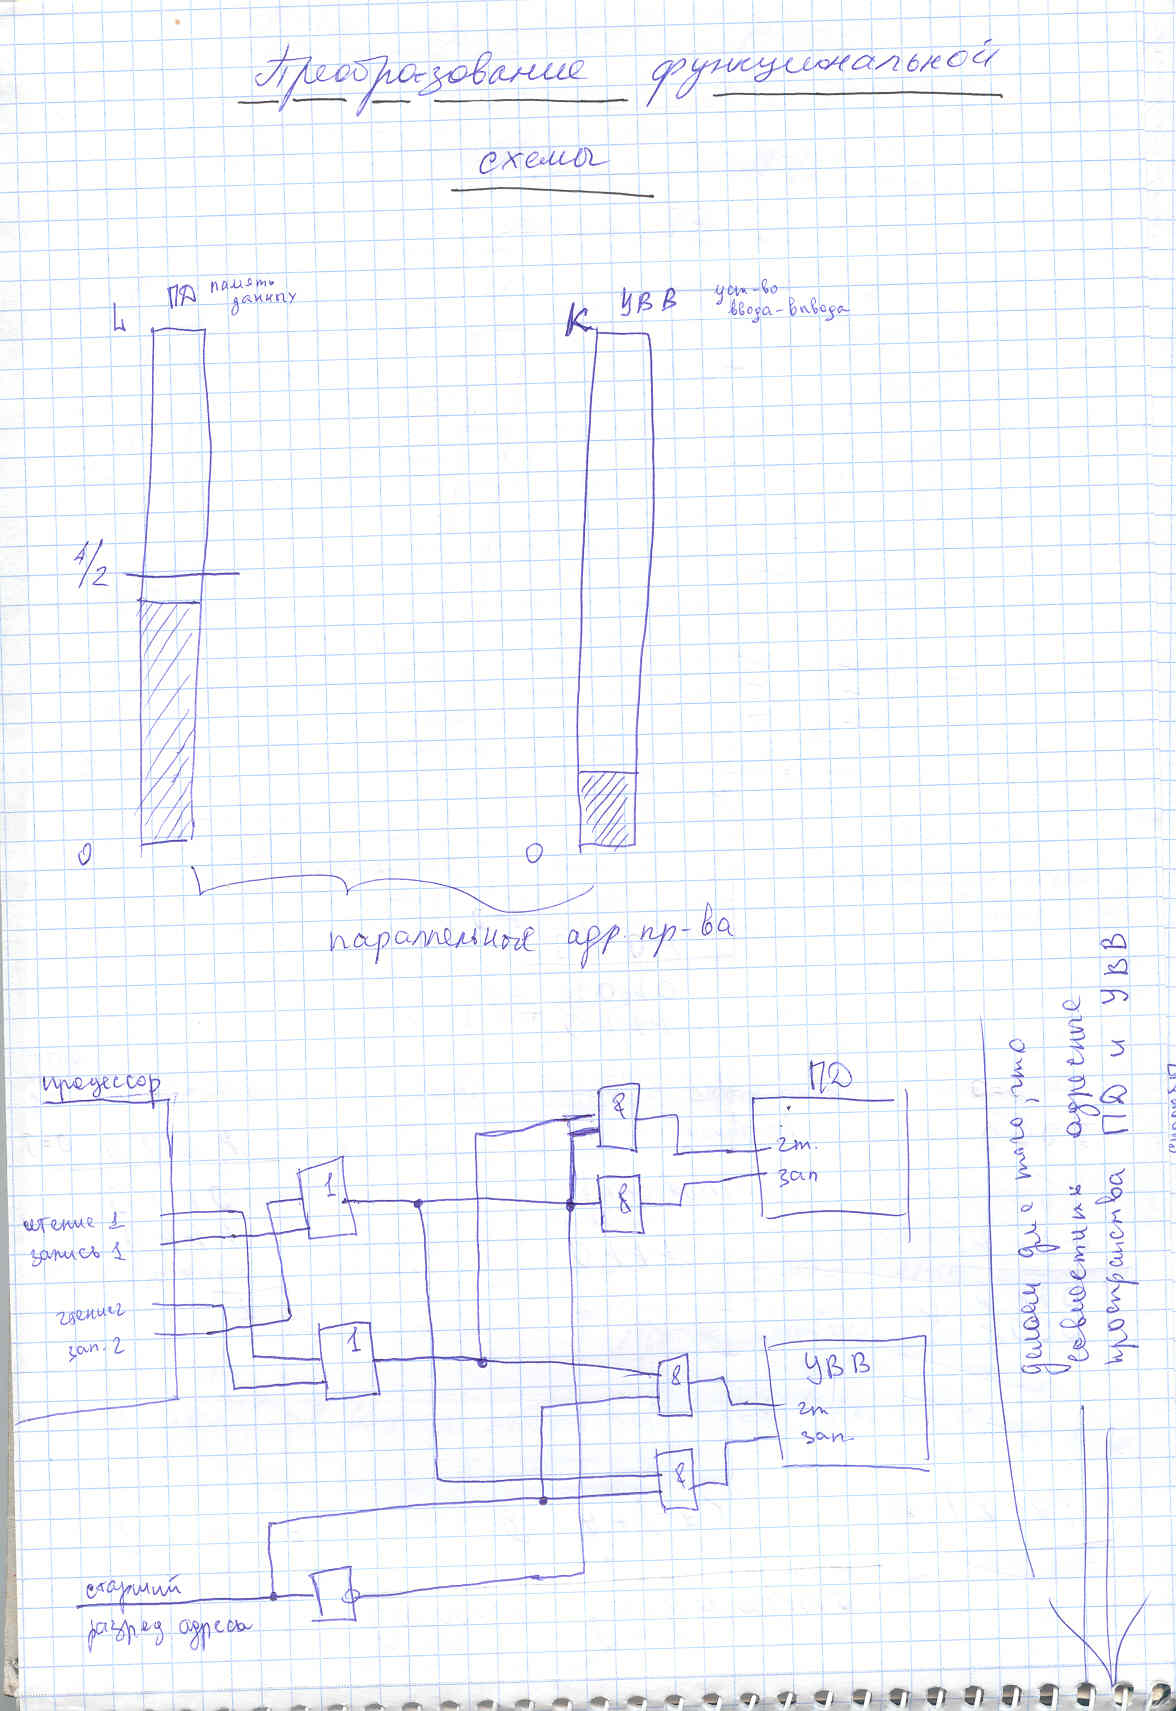 Преобразование функциональной
схемы
L
ПД память
данных
K
УВВ уст-во
ввода-вывода
1/2
0
0
параллельные адр. пр-ва
процессор
чтение 1
запись 1
чтение 2
зап. 2
1
1
&
&
&
&
ПД
чт.
зап
УВВ
чт
зап
старший
разряд адреса
делаем для того, что
совместить адресные
пространства ПД и УВВ